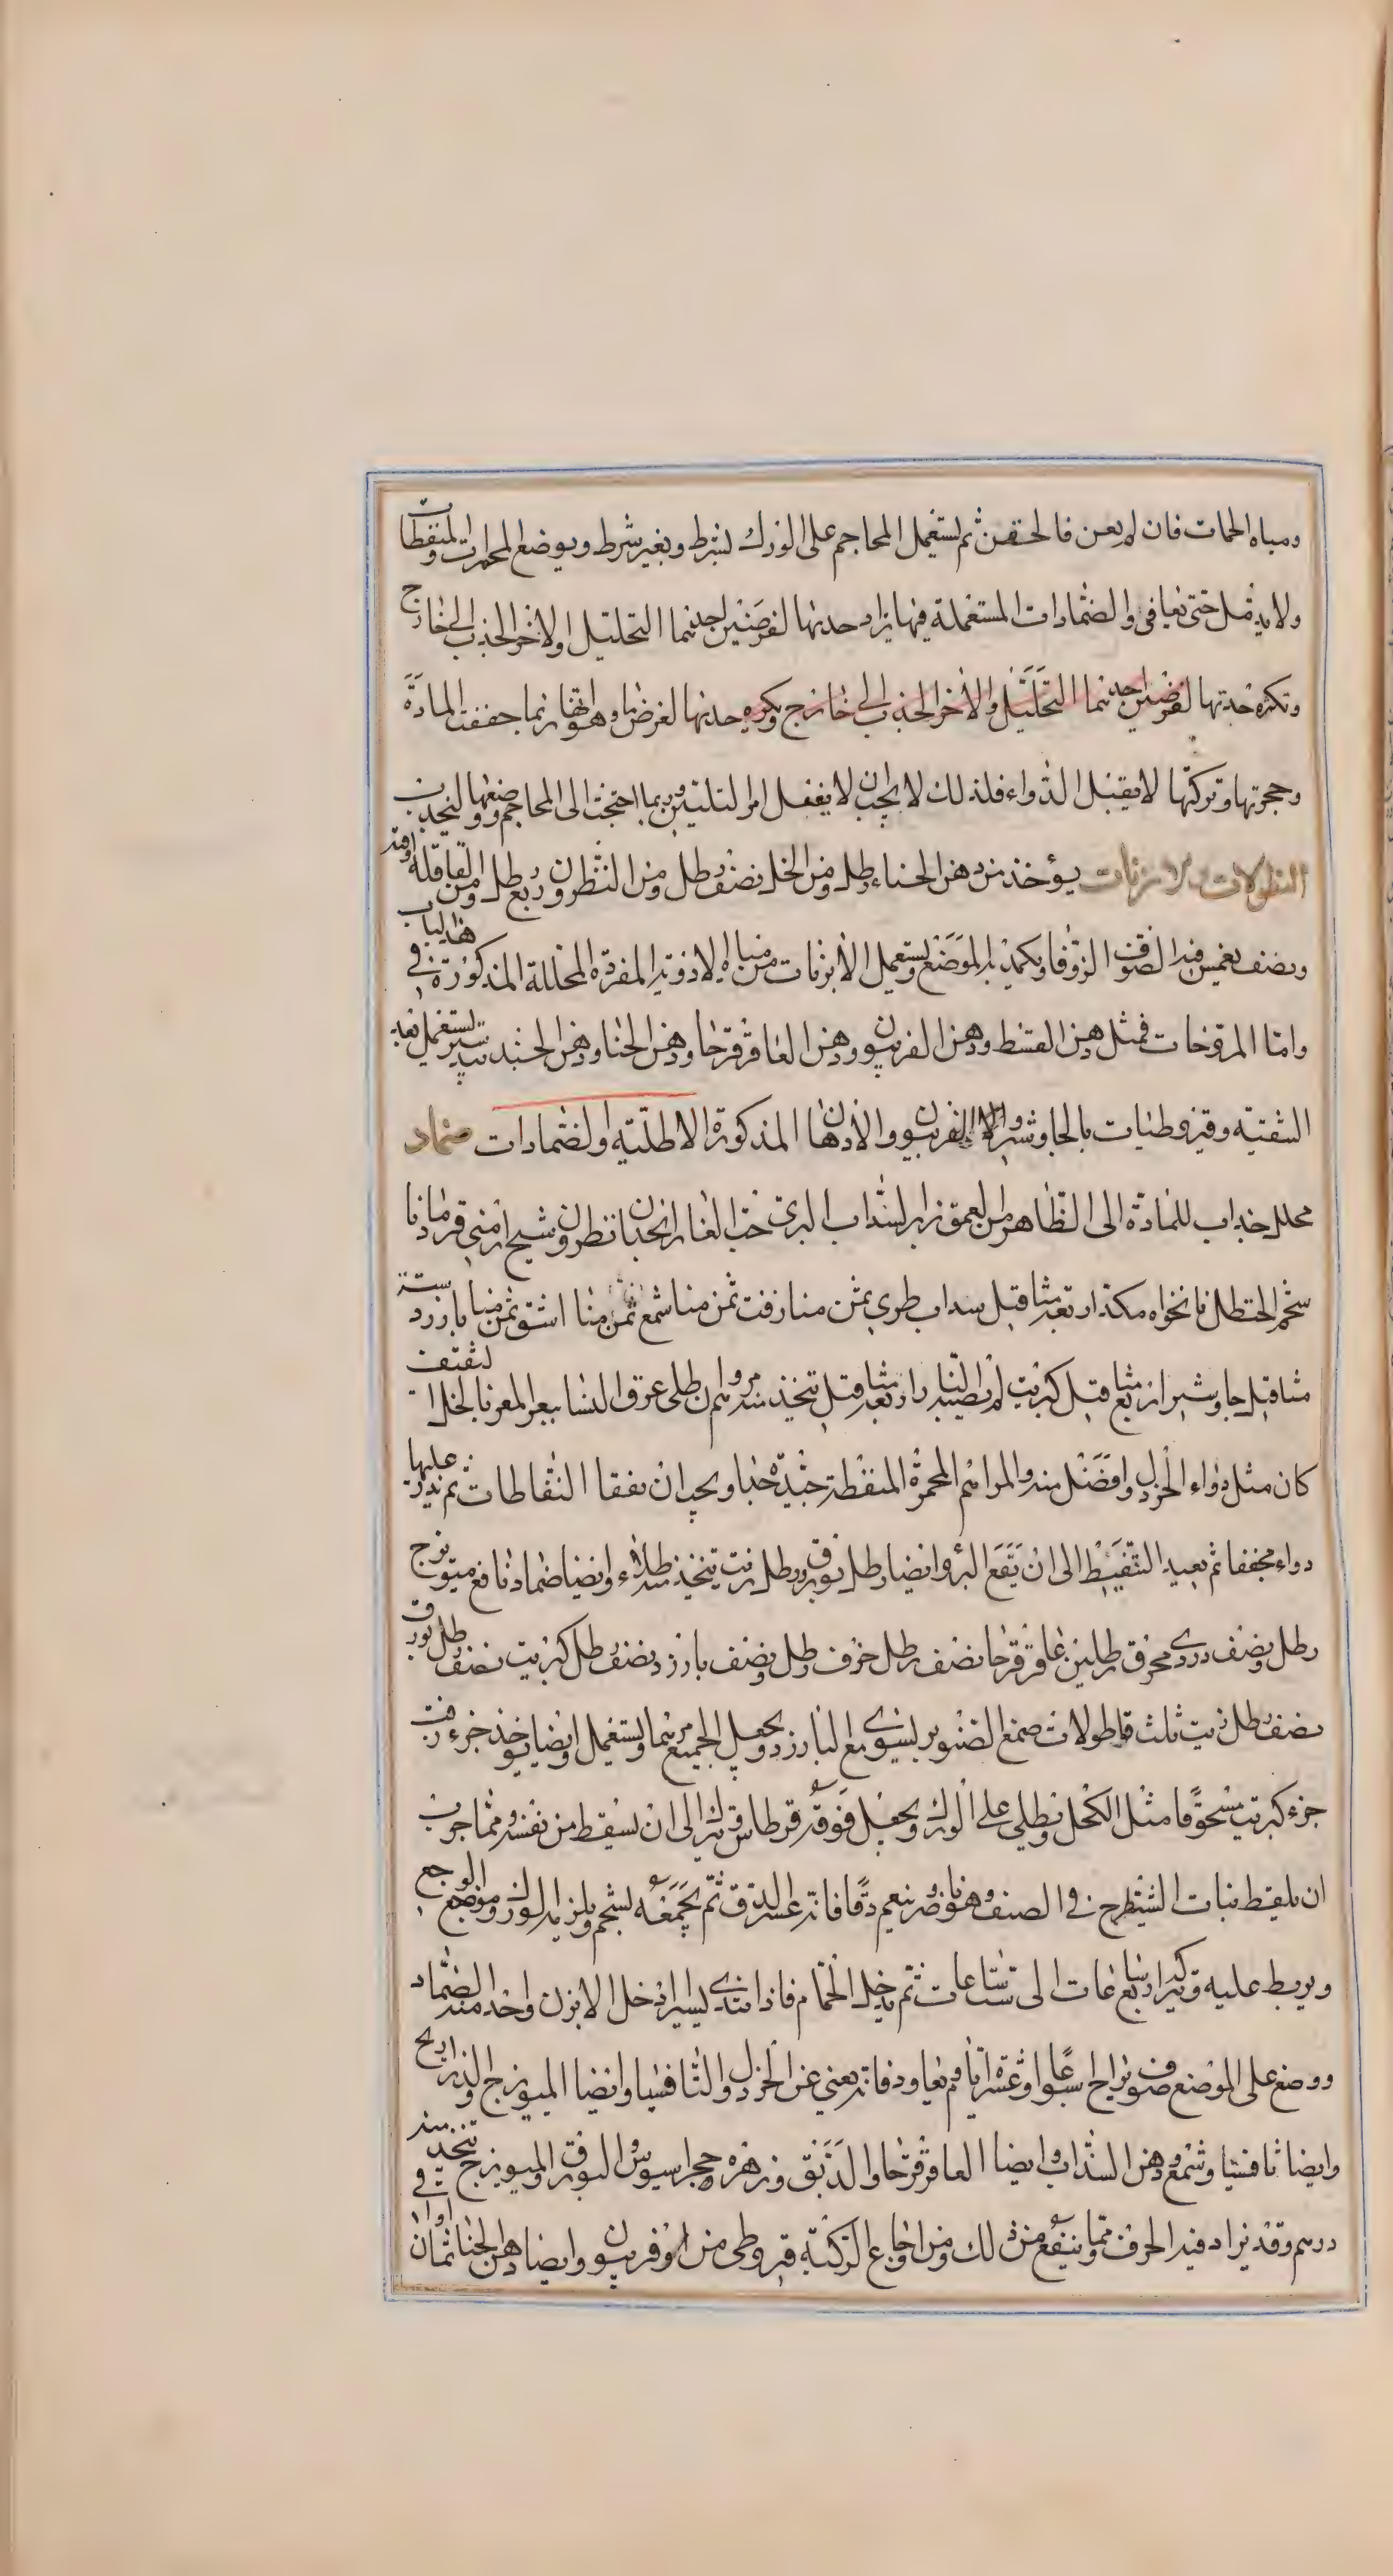 ومياه الحمات فان لم يعن فالحقن ثم يستعمل المحاجم على الورك بشرط وبغير شرط ويوضع المحمرات والمنفطات
ولا يدمل حتى يعافى والضمادات المستعملة فيها يزاد حدتها لغرضين احدهما التحليل والاخر الجذب الى خارج
وتكره حدتها لغرضين احدهما التحليل والاخر الجذب الى خارج وتكره حدتها لغرض وهو انها ربما جففت المادة
وحجرتها وتركتها لا يقبل الدواء فلذلك لا يجب ان لا يغفل امر التليين وربما احتجت الى المحاجم وضعها ليجذب
النطولات والابزنات يؤخذ من دهن الحناء رطل ومن الخل نصف رطل ومن النطرون ربع رطل ومن القاقلة اوقية
ونصف يغمس فيه الصوف الزوفا ويكمد به الموضع ويستعمل الابزنات من مياه الادوية المفردة المحللة المذكورة في هذا الباب
واما المروخات فمثل دهن القسط ودهن الفربيون ودهن العاقرقرحا ودهن الحنا ودهن الجندبيدستر يستعمل بعد
التنقية وقيروطيات بالجاوشير والفربيون والادهان المذكورة الاطلية والضمادات ضماد
محلل جذاب للمادة الى الظاهر من العمق بزر السذاب البري حب الغار انجدان نطرون شيح ارمني قردمانا
شحم الحنظل نانخواه مكد اربعة مثاقيل سذاب طري ثمن منا زفت ثمن منا شمع ثمن منا اشق ثمن منا بارزد ستة
مثاقيل جاوشير اربع مثاقيل كبريت لم يصبه النار اربعة مثاقيل يتخذ منه مرهم وان طلى عرق النسا ببعر المعز بالخل الثقيف
كان مثل دواء الخردل وافضل منه والمراهم المحمرة المنفطة جيدة جدا ويجب ان تفقا النفاطات ثم يذر عليها
دواء مجففا ثم يعيد التنفيط الى ان يقع البرء وايضا رطل بورق ورطل زيت يتخذ منه طلاء وايضا ضماد نافع ميويزج
رطل ونصف دردي محرق رطلين عاقرقرحا نصف رطل حرف رطل ونصف بارزد نصف رطل كبريت نصف رطل بورق
نصف رطل زيت ثلث قوطولات صمغ الصنوبر يشوى مع البارزد ويجعل الجميع مرهما ويستعمل وايضا يوخذ جزء زفت
جزء كبريت مسحوقا مثل الكحل ويطلي على الورك ويجعل فوقه قرطاس ويترك الى ان يسقط من نفسه ومما جرب
ان يلتقط نبات الشيطرج في الصيف وهو ناضر وينعم دقا فانه عسر الدق ثم يجمعه بشحم ويلزم به الورك وموضع الوجع
ويربط عليه ويترك اربع ساعات الى ست ساعات ثم يدخل الحمام فاذا تندى يسيرا ادخل الابزن واخذ منه الضماد
ووضع على الموضع صوف ويراح سبعا او عشرة ايام ثم يعاود فانه يغني عن الخردل والثافسيا وايضا الميوزج والذراريح
وايضا ثافسيا وشمع ودهن السذاب وايضا العاقرقرحا والدبق وزهره حجر اسيوس والبورق والميوزج يتخذ منه
درسم وقد يزاد فيه الحرف ومما ينفع من ذلك ومن اوجاع الركبة قيروطي من الفربيون وايضا دهن الحنا ثمان اواق في